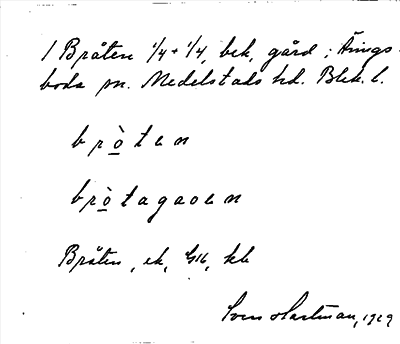 1 Bråten 1/4 + 1/4, bek. gård i Årings-
boda sn. Medelstads hd. Blek. l.
brò̱ten
brò̱tagaoen
Bråten, ek,
Sven Hartman, 1929